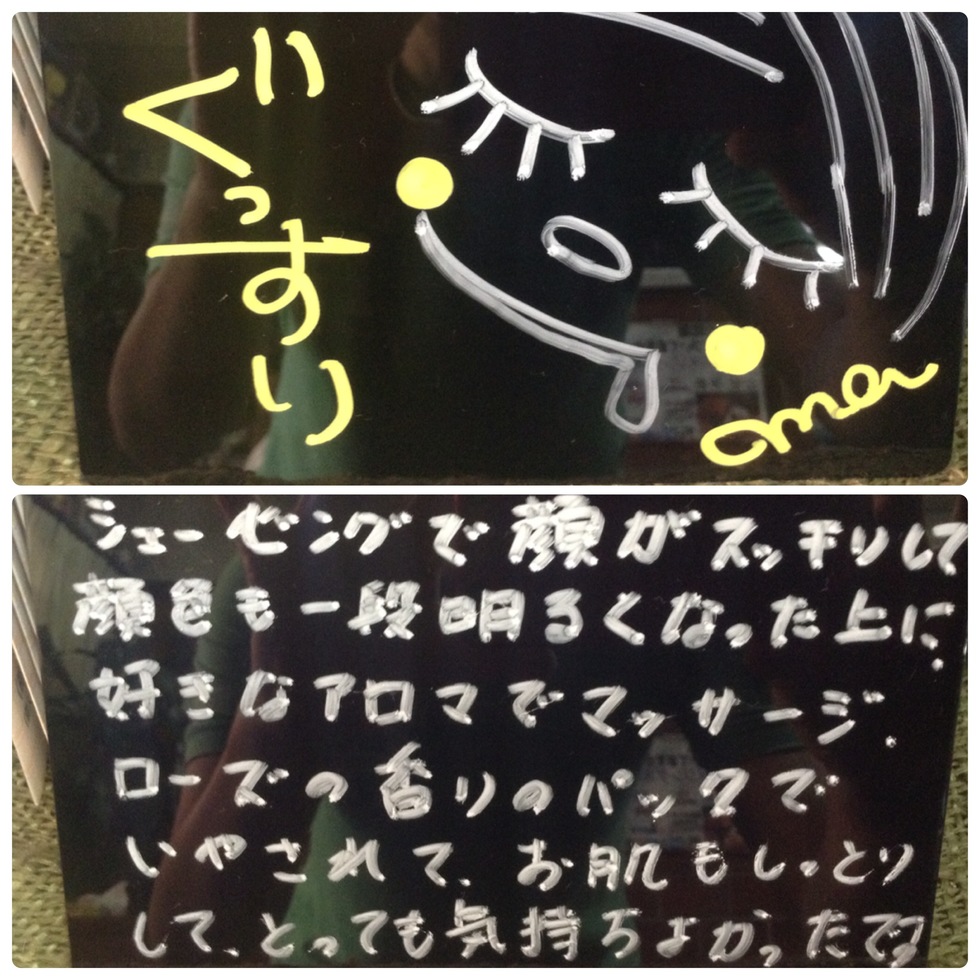 ぐっすり
mer
シェービングで顔がスッキリして
顔色も一段明るくなった上に、
好きなアロマでマッサージ.
ローズの香りのパックで
いやされて、お肌もしっとり
して、とっても気持ちよかったです